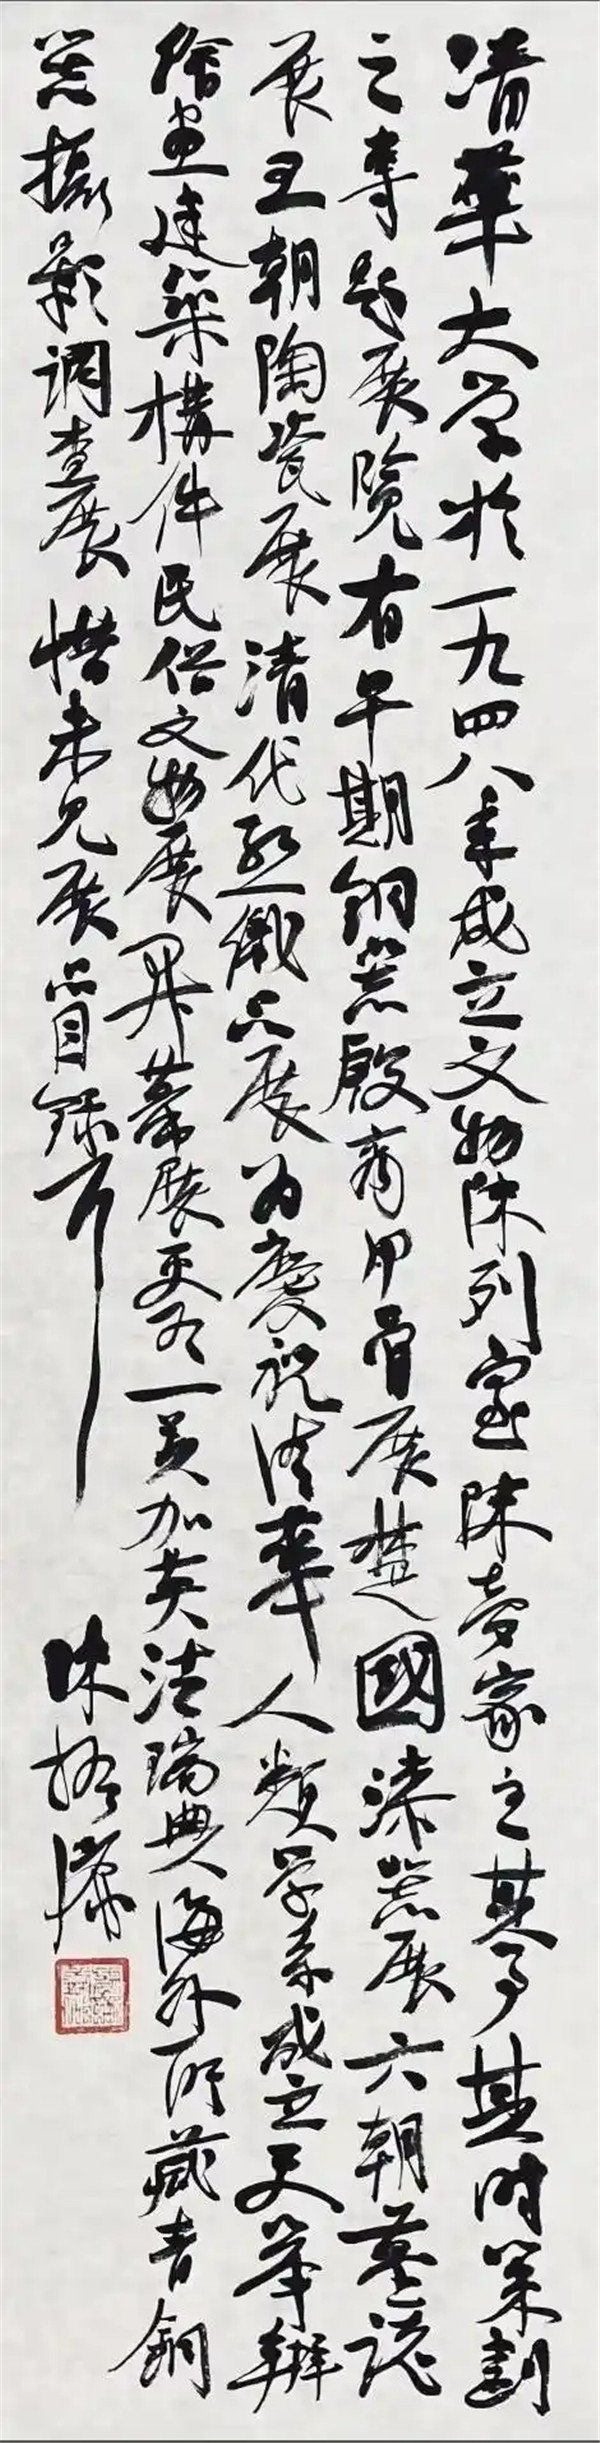 清華大学於一九四八年成立文物陳列室陳夢家主其事其时策劃
之专题展覽有早期銅器殷商甲骨展楚國漆器展六朝墓誌
展王朝陶瓷展清代丝織品展为慶祝清華人類学系成立又举辦
繪画建築構件民俗文物展开幕展更有一美加英法瑞典海外所藏青銅
器攝影調查展惜未见展品目録耳